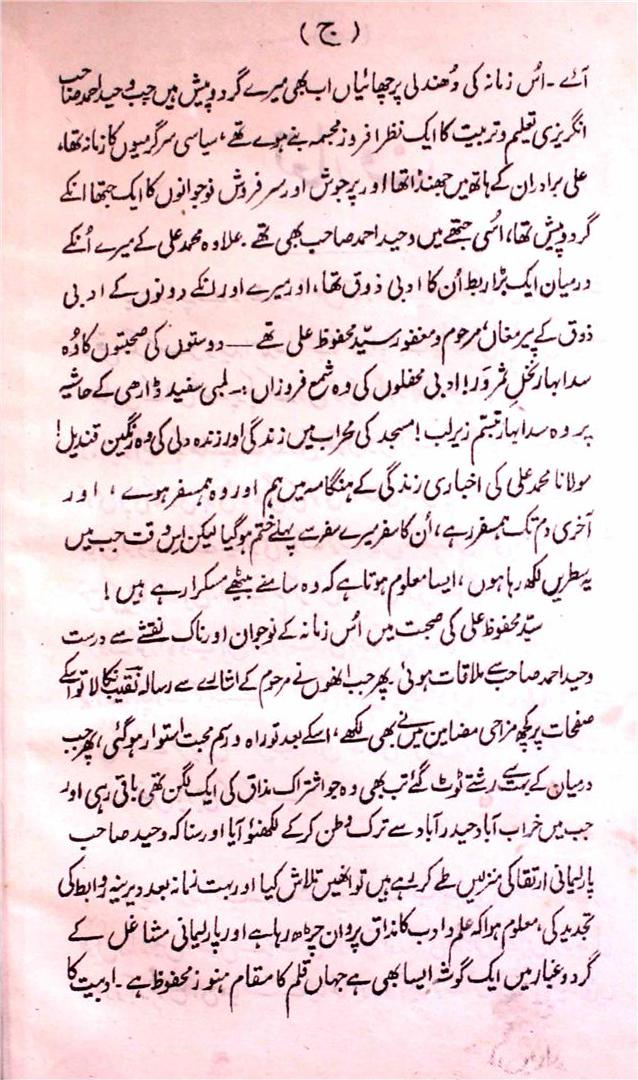 (ج)
آئے۔ اُس زمانہ کی دُھندلی پرچھائیاں اب بھی میرے گرد و پیش ہیں جب وحید احمد صاحب
انگریزی تعلیم و تربیت کا ایک نظر افروز مجسمہ بنے ہوے تھے، سیاسی سرگرمیوں کا زمانہ تھا،
علی برادران کے ہاتھ میں جھنڈا تھا اور پرجوش اور سرفروش نوجوانوں کا ایک جتھا انکے
گرد و پیش تھا، اُسی جتھے میں وحید احمد صاحب بھی تھے۔ علاوہ محمد علی کے میرے اُنکے
درمیان ایک بڑا ربط اُن کا ادبی ذوق تھا، اور میرے اور انکے دونوں کے ادبی
ذوق کے پیرمغاں، مرحوم و مغفور سیّد محفوظ علی تھے — دوستوں کی صحبتوں کا وُہ
سدابہار نخلِ ثمروَر! ادبی محفلوں کی وہ شمع فروزاں :۔ لمبی سفید ڈارھی کے حاشیہ
پر وہ سدابہار تبسّم زیرلب! مسجد کی محراب میں زندگی اور زندہ دلی کی وہ رنگین قندیل!
مولانا محمد علی کی اخباری زندگی کے ہنگامہ میں ہم اور وہ ہمسفر ہوے، اور
آخری دم تک ہمسفر رہے، اُن کا سفر میرے سفر سے پہلے ختم ہوگیا لیکن اس وقت جب میں
یہ سطریں لکھ رہا ہوں، ایسا معلوم ہوتا ہے کہ وہ سامنے بیٹھے مسکرا رہے ہیں!
سیّد محفوظ علی کی صحبت میں اُس زمانہ کے نوجوان اور ناک نقشے سے درست
وحید احمد صاحب سے ملاقات ہوئی۔ پھر جب انھوں نے مرحوم کے اشارے سے رسالہ نقیب نکالا تو اسکے
صفحات پر کچھ مزاحی مضامین میں نے بھی لکھے، اسکے بعد تو راہ و رسم محبت استوار ہوگئی، پھر جب
درمیان کے بہت سے رشتے ٹوٹ گئے تب بھی وہ جو اشتراک مذاق کی ایک لگن تھی باقی رہی اور
جب میں خراب آباد حیدرآباد سے ترک وطن کرکے لکھنؤ آیا اور سنا کہ وحید صاحب
پارلیمانی ارتقا کی منزلیں طے کر رہے ہیں تو انھیں تلاش کیا اور بہت زمانہ بعد دیرینہ روابط کی
تجدید کی، معلوم ہوا کہ علم و ادب کا مذاق پروان چڑھ رہا ہے اور پارلیمانی مشاغل کے
گرد و غبار میں ایک گوشہ ایسا بھی ہے جہاں قلم کا مقام ہنوز محفوظ ہے۔ ادبیت کا